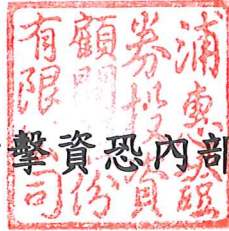 浦惠證
券投資
顧問股份
有限公司
擊資恐內部